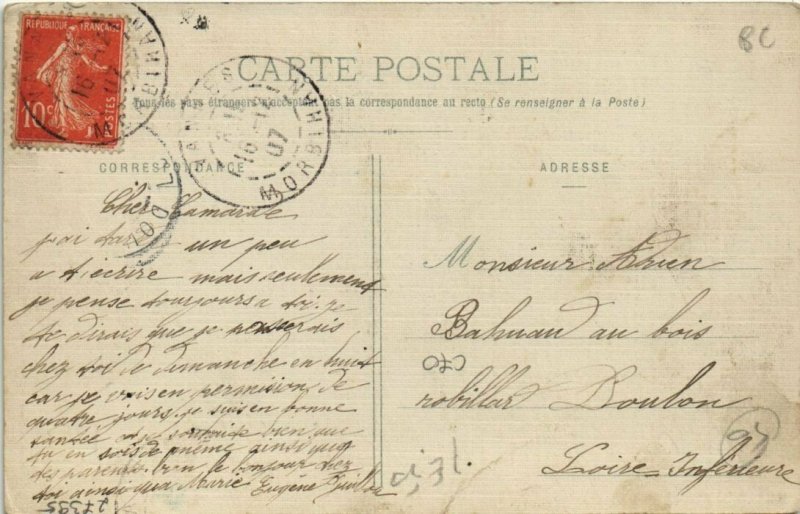 REPUBLIQUE FRANÇAISE
10c
POSTES
8C
CARTE POSTALE
Tous les pays étrangers n'acceptent pas la correspondance au recto (Se renseigner à la Poste)
MORBIHAN
16-12
07
CORRESPONDANCE
ADRESSE
Cher Camarade
j'ai tardé un peu
a t'écrire mais seulement
je pense toujours a toi. je
te dirais que je passerais
chez toi de dimanche en huit
car je vais en permission de
quatre jours. je suis en bonne
santée et je souhaite bien que
tu en sois de même ainsi que
tes parents. bon le bonjour chez
toi ainsi qua Marie Eugène
Monsieur
Bahuau au bois
robillar Doulon
Loire-Inférieure
27395